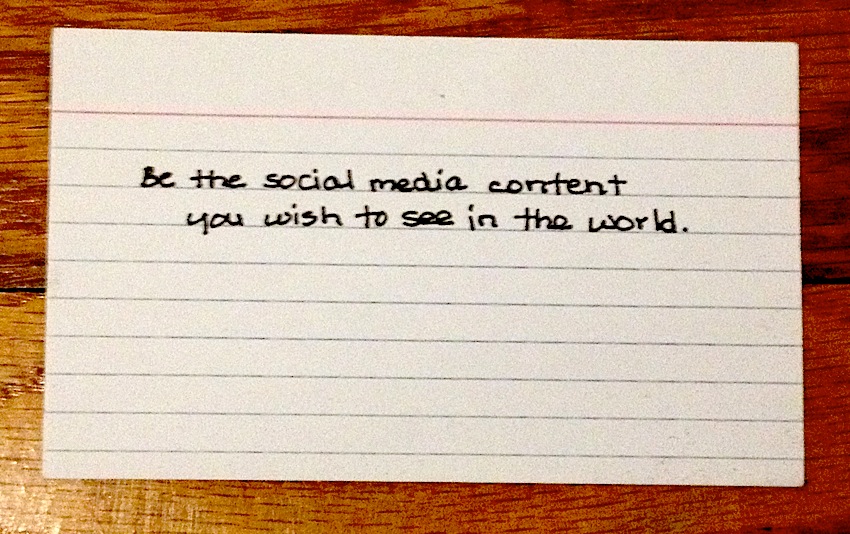 Be the social media content
you wish to see in the world.